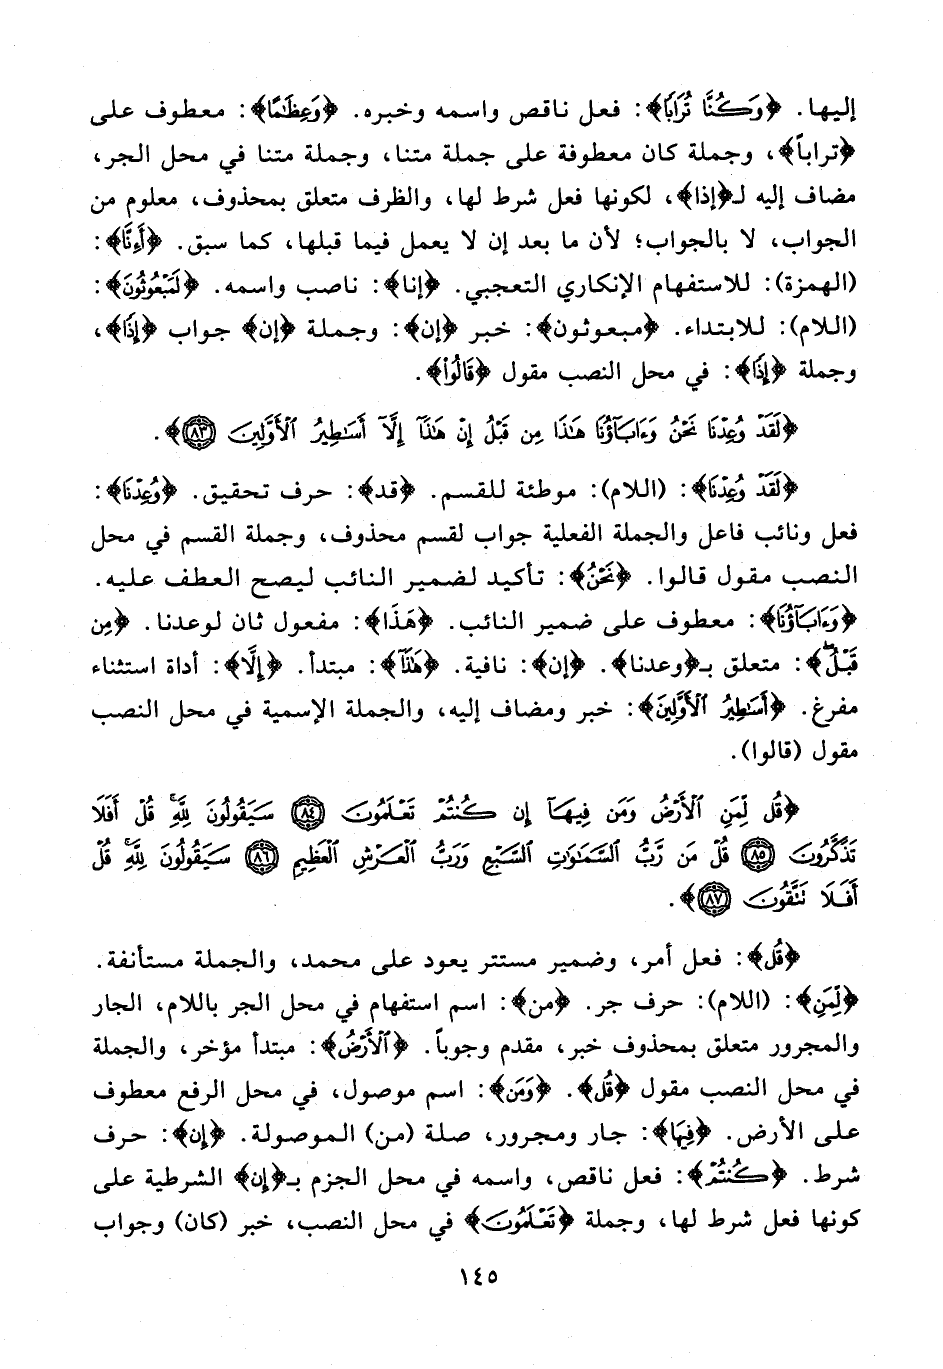 إليها. ﴿وَكُنَّا تُرَابًا﴾: فعل ناقص واسمه وخبره. ﴿وَعِظَٰمًا﴾: معطوف على
﴿تراباً﴾، وجملة كان معطوفة على جملة متنا، وجملة متنا في محل الجر،
مضاف إليه لـ﴿إذا﴾، لكونها فعل شرط لها، والظرف متعلق بمحذوف، معلوم من
الجواب، لا بالجواب؛ لأن ما بعد إن لا يعمل فيما قبلها، كما سبق. ﴿أَءِنَّا﴾:
(الهمزة): للاستفهام الإنكاري التعجبي. ﴿إنا﴾: ناصب واسمه. ﴿لَمَبْعُوثُونَ﴾:
(اللام): للابتداء. ﴿مبعوثون﴾: خبر ﴿إن﴾: وجملة ﴿إن﴾ جواب ﴿إِذَا﴾،
وجملة ﴿إِذَا﴾: في محل النصب مقول ﴿قَالُوٓا۟﴾.
﴿لَقَدْ وُعِدْنَا نَحْنُ وَءَابَآؤُنَا هَٰذَا مِن قَبْلُ إِنْ هَٰذَآ إِلَّآ أَسَٰطِيرُ ٱلْأَوَّلِينَ ۝٨٣﴾.
﴿لَقَدْ وُعِدْنَا﴾: (اللام): موطئة للقسم. ﴿قد﴾: حرف تحقيق. ﴿وُعِدْنَا﴾:
فعل ونائب فاعل والجملة الفعلية جواب لقسم محذوف، وجملة القسم في محل
النصب مقول قالوا. ﴿نَحْنُ﴾: تأكيد لضمير النائب ليصح العطف عليه.
﴿وَءَابَآؤُنَا﴾: معطوف على ضمير النائب. ﴿هَٰذَا﴾: مفعول ثان لوعدنا. ﴿مِن
قَبْلُ﴾: متعلق بـ﴿وعدنا﴾. ﴿إن﴾: نافية. ﴿هَٰذَآ﴾: مبتدأ. ﴿إِلَّا﴾: أداة استثناء
مفرغ. ﴿أَسَٰطِيرُ ٱلْأَوَّلِينَ﴾: خبر ومضاف إليه، والجملة الإسمية في محل النصب
مقول (قالوا).
﴿قُل لِّمَنِ ٱلْأَرْضُ وَمَن فِيهَآ إِن كُنتُمْ تَعْلَمُونَ ۝٨٤ سَيَقُولُونَ لِلَّهِ ۚ قُلْ أَفَلَا
تَذَكَّرُونَ ۝٨٥ قُلْ مَن رَّبُّ ٱلسَّمَٰوَٰتِ ٱلسَّبْعِ وَرَبُّ ٱلْعَرْشِ ٱلْعَظِيمِ ۝٨٦ سَيَقُولُونَ لِلَّهِ ۚ قُلْ
أَفَلَا تَتَّقُونَ ۝٨٧﴾.
﴿قُل﴾: فعل أمر، وضمير مستتر يعود على محمد، والجملة مستأنفة.
﴿لِّمَنِ﴾: (اللام): حرف جر. ﴿من﴾: اسم استفهام في محل الجر باللام، الجار
والمجرور متعلق بمحذوف خبر، مقدم وجوباً. ﴿ٱلْأَرْضُ﴾: مبتدأ مؤخر، والجملة
في محل النصب مقول ﴿قُل﴾. ﴿وَمَن﴾: اسم موصول، في محل الرفع معطوف
على الأرض. ﴿فِيهَا﴾: جار ومجرور، صلة (من) الموصولة. ﴿إن﴾: حرف
شرط. ﴿كُنتُمْ﴾: فعل ناقص، واسمه في محل الجزم بـ﴿إن﴾ الشرطية على
كونها فعل شرط لها، وجملة ﴿تَعْلَمُونَ﴾ في محل النصب، خبر (كان) وجواب
١٤٥